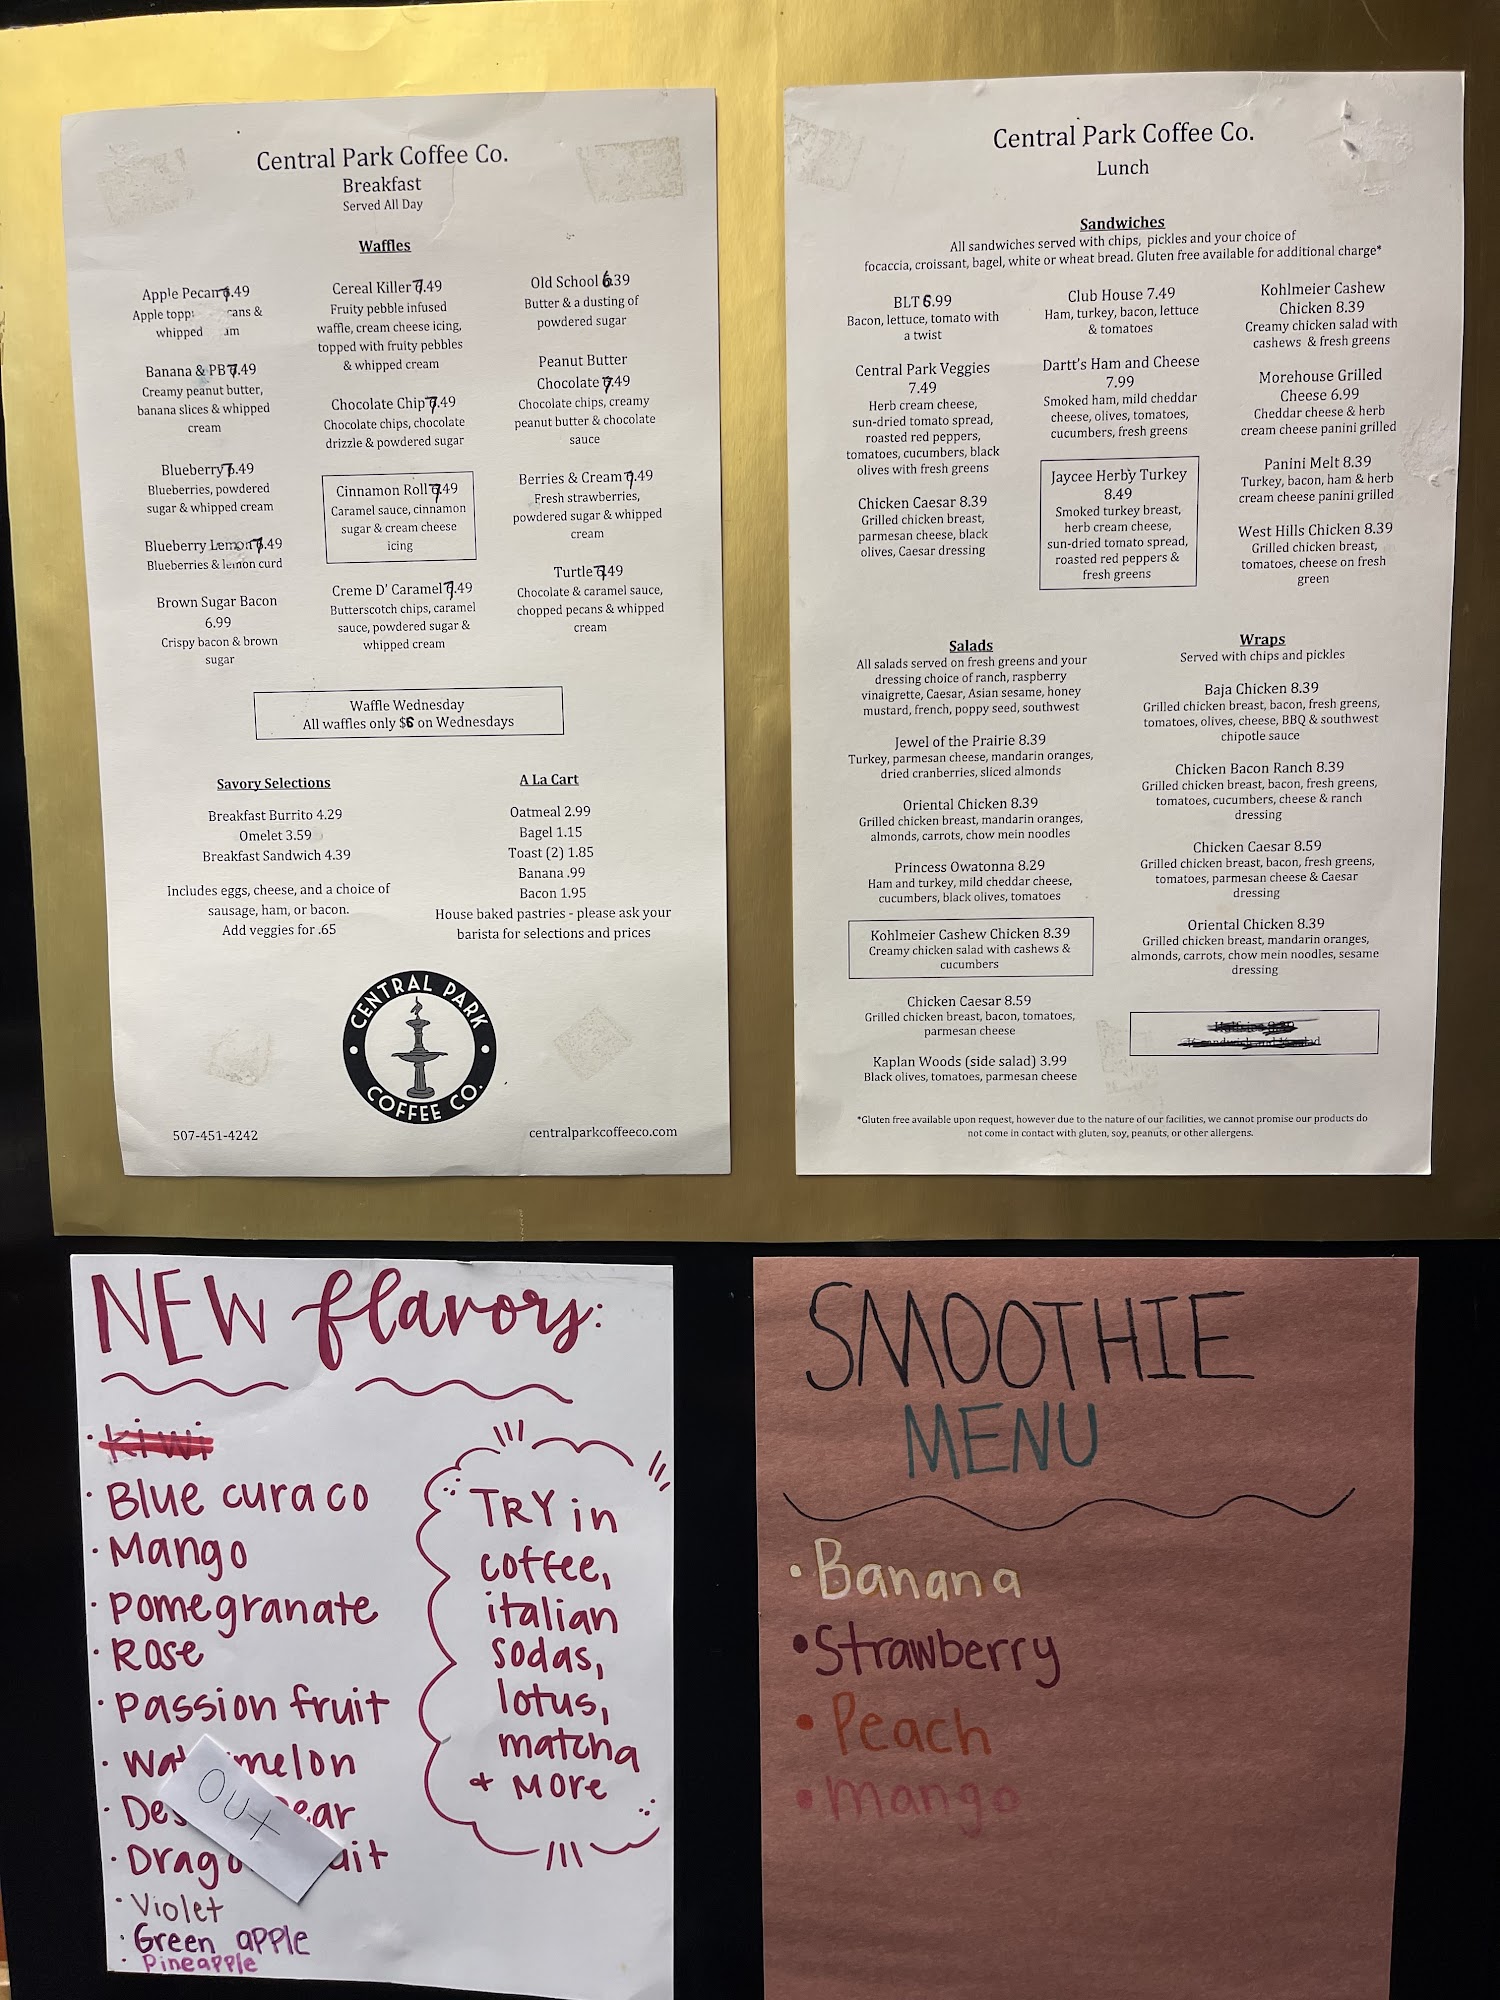 Central Park Coffee Co.
Breakfast
Served All Day
Waffles
Apple Pecan 7.49
Apple
whipped
Banana & PB 7.49
Creamy peanut butter,
banana slices & whipped
cream
Blueberry 7.49
Blueberries, powdered
sugar & whipped cream
Blueberry Lemon 7.49
Blueberries & lemon curd
Brown Sugar Bacon
6.99
Crispy bacon & brown
sugar
Cereal Killer 7.49
Fruity pebble infused
waffle, cream cheese icing,
topped with fruity pebbles
& whipped cream
Chocolate Chip 7.49
Chocolate chips, chocolate
drizzle & powdered sugar
Cinnamon Roll 7.49
Caramel sauce, cinnamon
sugar & cream cheese
icing
Creme D' Caramel 7.49
Butterscotch chips, caramel
sauce, powdered sugar &
whipped cream
Old School 6.39
Butter & a dusting of
powdered sugar
Peanut Butter
Chocolate 7.49
Chocolate chips, creamy
peanut butter & chocolate
sauce
Berries & Cream 7.49
Fresh strawberries,
powdered sugar & whipped
cream
Turtle 7.49
Chocolate & caramel sauce,
chopped pecans & whipped
cream
Waffle Wednesday
All waffles only $6 on Wednesdays
Savory Selections
Breakfast Burrito 4.29
Omelet 3.59
Breakfast Sandwich 4.39
Includes eggs, cheese, and a choice of
sausage, ham, or bacon.
Add veggies for .65
A La Cart
Oatmeal 2.99
Bagel 1.15
Toast (2) 1.85
Banana .99
Bacon 1.95
House baked pastries - please ask your
barista for selections and prices
CENTRAL PARK
COFFEE CO.
507-451-4242
centralparkcoffeeco.com
Central Park Coffee Co.
Lunch
Sandwiches
All sandwiches served with chips, pickles and your choice of
focaccia, croissant, bagel, white or wheat bread. Gluten free available for additional charge*
BLT 6.99
Bacon, lettuce, tomato with
a twist
Central Park Veggies
7.49
Herb cream cheese,
sun-dried tomato spread,
roasted red peppers,
tomatoes, cucumbers, black
olives with fresh greens
Chicken Caesar 8.39
Grilled chicken breast,
parmesan cheese, black
olives, Caesar dressing
Club House 7.49
Ham, turkey, bacon, lettuce
& tomatoes
Dartt's Ham and Cheese
7.99
Smoked ham, mild cheddar
cheese, olives, tomatoes,
cucumbers, fresh greens
Jaycee Herby Turkey
8.49
Smoked turkey breast,
herb cream cheese,
sun-dried tomato spread,
roasted red peppers &
fresh greens
Kohlmeier Cashew
Chicken 8.39
Creamy chicken salad with
cashews & fresh greens
Morehouse Grilled
Cheese 6.99
Cheddar cheese & herb
cream cheese panini grilled
Panini Melt 8.39
Turkey, bacon, ham & herb
cream cheese panini grilled
West Hills Chicken 8.39
Grilled chicken breast,
tomatoes, cheese on fresh
green
Salads
All salads served on fresh greens and your
dressing choice of ranch, raspberry
vinaigrette, Caesar, Asian sesame, honey
mustard, french, poppy seed, southwest
Jewel of the Prairie 8.39
Turkey, parmesan cheese, mandarin oranges,
dried cranberries, sliced almonds
Oriental Chicken 8.39
Grilled chicken breast, mandarin oranges,
almonds, carrots, chow mein noodles
Princess Owatonna 8.29
Ham and turkey, mild cheddar cheese,
cucumbers, black olives, tomatoes
Kohlmeier Cashew Chicken 8.39
Creamy chicken salad with cashews &
cucumbers
Chicken Caesar 8.59
Grilled chicken breast, bacon, tomatoes,
parmesan cheese
Kaplan Woods (side salad) 3.99
Black olives, tomatoes, parmesan cheese
Wraps
Served with chips and pickles
Baja Chicken 8.39
Grilled chicken breast, bacon, fresh greens,
tomatoes, olives, cheese, BBQ & southwest
chipotle sauce
Chicken Bacon Ranch 8.39
Grilled chicken breast, bacon, fresh greens,
tomatoes, cucumbers, cheese & ranch
dressing
Chicken Caesar 8.59
Grilled chicken breast, bacon, fresh greens,
tomatoes, parmesan cheese & Caesar
dressing
Oriental Chicken 8.39
Grilled chicken breast, mandarin oranges,
almonds, carrots, chow mein noodles, sesame
dressing
*Gluten free available upon request, however due to the nature of our facilities, we cannot promise our products do
not come in contact with gluten, soy, peanuts, or other allergens.
NEW flavors:
· Kiwi
· Blue curaco
· Mango
· Pomegranate
· Rose
· Passion fruit
· Watermelon
· Des ear
· Dragonfruit
· Violet
· Green apple
· Pineapple
OUT
TRY in
coffee,
italian
sodas,
lotus,
matcha
+ MORE
SMOOTHIE
MENU
• Banana
• Strawberry
• Peach
• Mango